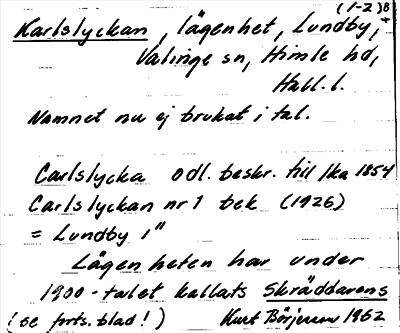 (1-2)B
Karlslyckan, lägenhet, Lundby, +
Valinge sn, Himle hd,
Hall. l.
Namnet nu ej brukat i tal.
Carlslycka odl. beskr. till lka 1854
Carlslyckan nr 1 bek (1926)
= Lundby 1"
Lägenheten har under
1900-talet kallats Skräddarens
(se forts. blad!) Kurt Börjesson 1962